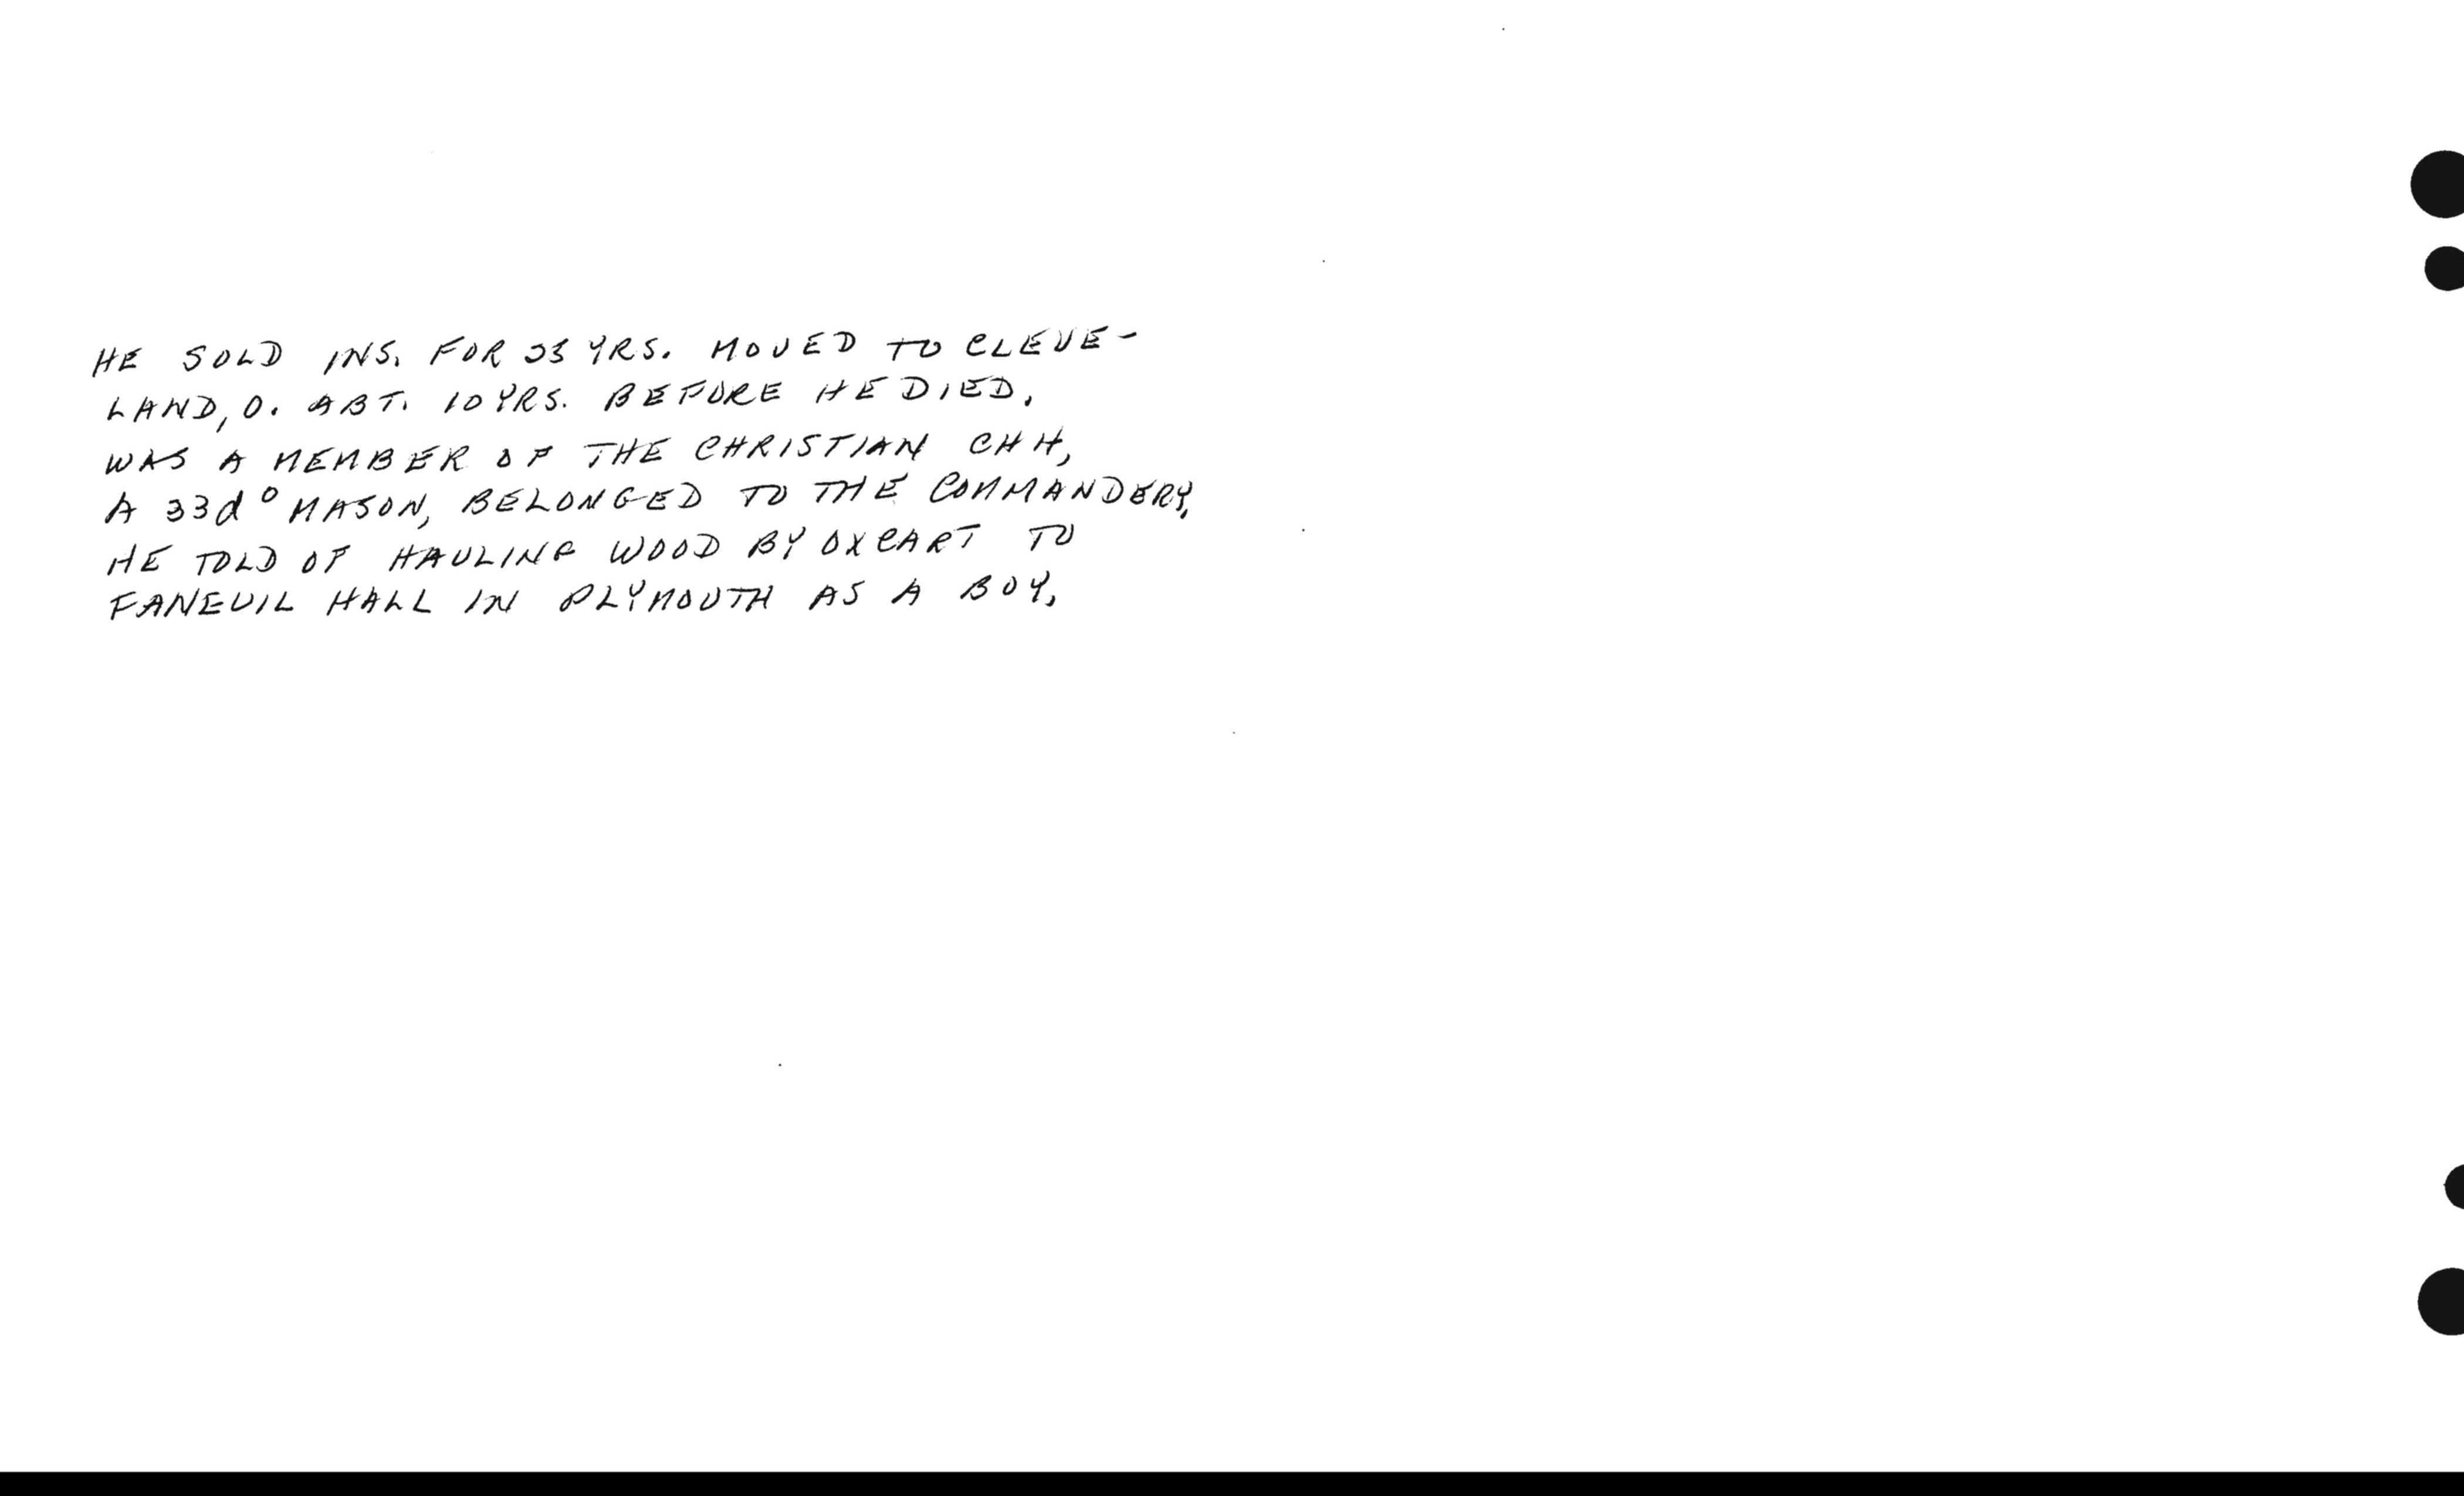 HE SOLD INS. FOR 35 YRS. MOVED TO CLEVE-
LAND, O. ABT. 10 YRS. BEFORE HE DIED.
WAS A MEMBER OF THE CHRISTIAN CHH,
A 33d° MASON, BELONGED TO THE COMMANDERY,
HE TOLD OF HAULING WOOD BY OXCART TO
FANEUIL HALL IN PLYMOUTH AS A BOY.